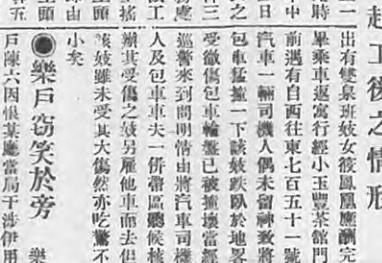 起工後之情形
出有雙泉班妓女筱鳳凰應酬完
畢乘車返寓行經小玉豐茶館門
前遇有自西往東七百五十一號
汽車一輛司機人偶未留神致將
包車猛撞一下該妓跌臥於地畧
受微傷包車輪盤已被撞壞當經
巡警來到問明情由將汽車司機
人及包車車夫一併帶區聽候核
辦其受傷之妓另雇他車而去但
該妓雖未受其大傷然亦吃驚不
小矣
●樂戶窃笑於旁 樂
戶陳六因恨某廳當局干涉伊用